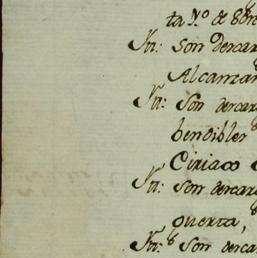 ta N.º de
Yn: Son descar
Alcanzar
Yn: Son descar
bendibler
Ciriaco
Yn: Son descar
guerta,
Yn: Son desca